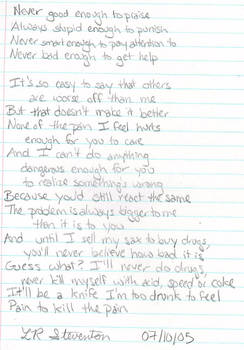 Never good enough to praise
Always stupid enough to punish
Never smart enough to pay attention to
Never bad enough to get help
It's so easy to say that others
are worse off than me
But that doesn't make it better
None of the pain I feel hurts
enough for you to care
And I can't do anything
dangerous enough for you
to realize something's wrong
Because you'd still react the same
The problem is always bigger to me
than it is to you
And until I sell my sax to buy drugs,
you'll never believe how bad it is
Guess what? I'll never do drugs,
never kill myself with acid, speed or coke
It'll be a knife I'm too drunk to feel
Pain to kill the pain
LR Steventon 07/10/05